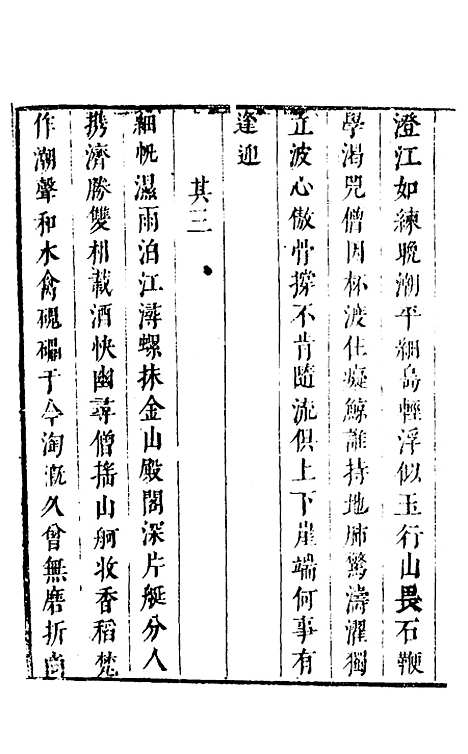 澄江如練晚潮平綱島輕浮似玉行山畏石鞭
學渴兕僧因杯渡住癡鯨誰持地肺驚濤濯獨
正波心傲骨撐不肯隨流俱上下崖端何事有
逢迎
其三
細帆濕雨泊江潯螺抹金山殿閣深片艇分人
携濟勝雙柑載酒快幽尋僧搖山舸收香稻梵
作潮聲和水禽磈礧于今淘漑久曾無磨折尚